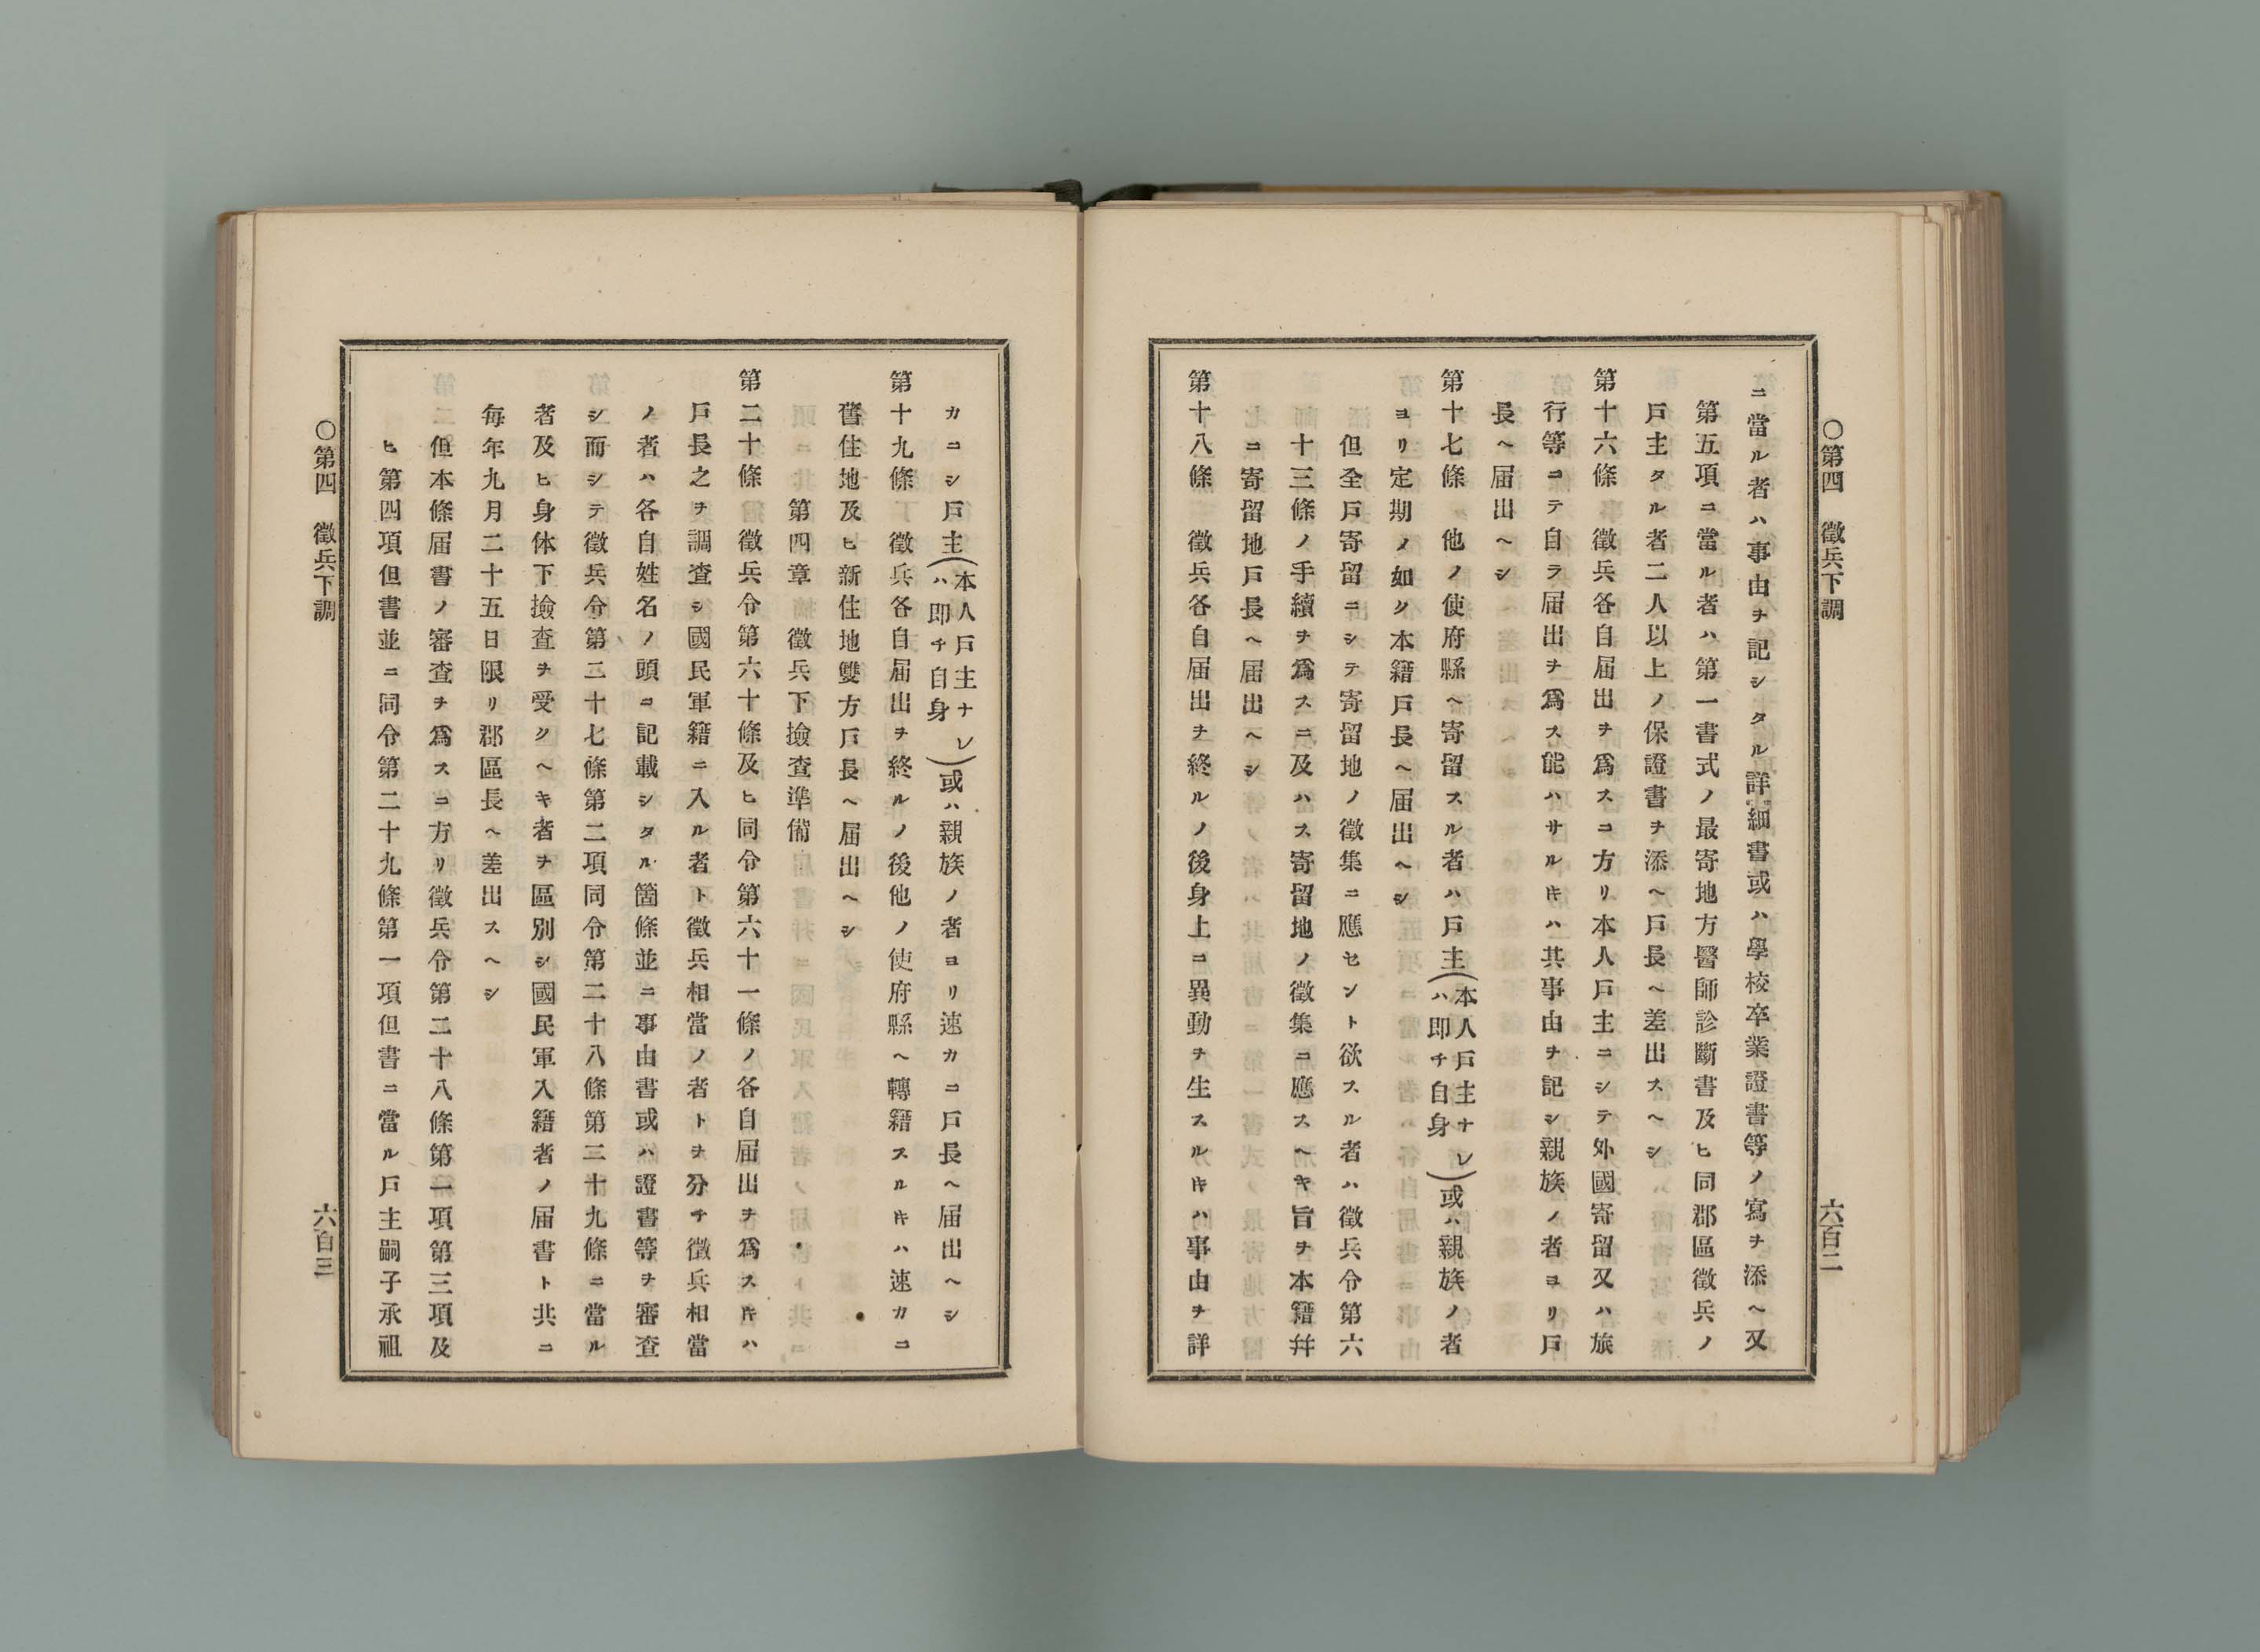 〇第四　徵兵下調
六百二
ニ當ル者ハ事由ヲ記シタル詳細書或ハ學校卒業證書等ノ寫ヲ添ヘ又
第五項ニ當ル者ハ第一書式ノ最寄地方醫師診斷書及ヒ同郡區徵兵ノ
戸主タル者二人以上ノ保證書ヲ添ヘ戸長ヘ差出スヘシ
第十六條　徵兵各自届出ヲ爲スニ方リ本人戸主ニシテ外國寄留又ハ旅
行等ニテ自ラ届出ヲ爲ス能ハサルキハ其事由ヲ記シ親族ノ者ヨリ戸
長ヘ届出ヘシ
第十七條　他ノ使府縣ヘ寄留スル者ハ戸主(本人戸主ナレハ即チ自身)或ハ親族ノ者
ヨリ定期ノ如ク本籍戸長ヘ届出ヘシ
但全戸寄留ニシテ寄留地ノ徵集ニ應セント欲スル者ハ徵兵令第六
十三條ノ手續ヲ爲スニ及ハス寄留地ノ徵集ニ應スヘキ旨ヲ本籍幷
ニ寄留地戸長ヘ届出ヘシ
第十八條　徵兵各自届出ヲ終ルノ後身上ニ異動ヲ生スルキハ事由ヲ詳
カニシ戸主(本人戸主ナレハ即チ自身)或ハ親族ノ者ヨリ速カニ戸長ヘ届出ヘシ
第十九條　徵兵各自届出ヲ終ルノ後他ノ使府縣ヘ轉籍スルキハ速カニ
舊住地及ヒ新住地雙方戸長ヘ届出ヘシ
第四章　徵兵下撿査準備
第二十條　徵兵令第六十條及ヒ同令第六十一條ノ各自届出ヲ爲スキハ
戸長之ヲ調査シ國民軍籍ニ入ル者ト徵兵相當ノ者トヲ分チ徵兵相當
ノ者ハ各自姓名ノ頭ニ記載シタル箇條並ニ事由書或ハ證書等ヲ審査
シ而シテ徵兵令第二十七條第二項同令第二十八條第三十九條ニ當ル
者及ヒ身体下撿査ヲ受クヘキ者ヲ區別シ國民軍入籍者ノ届書ト共ニ
每年九月二十五日限リ郡區長ヘ差出スヘシ
但本條届書ノ審査ヲ爲スニ方リ徵兵令第二十八條第一項第三項及
ヒ第四項但書並ニ同令第二十九條第一項但書ニ當ル戸主嗣子承祖
〇第四　徵兵下調
六百三